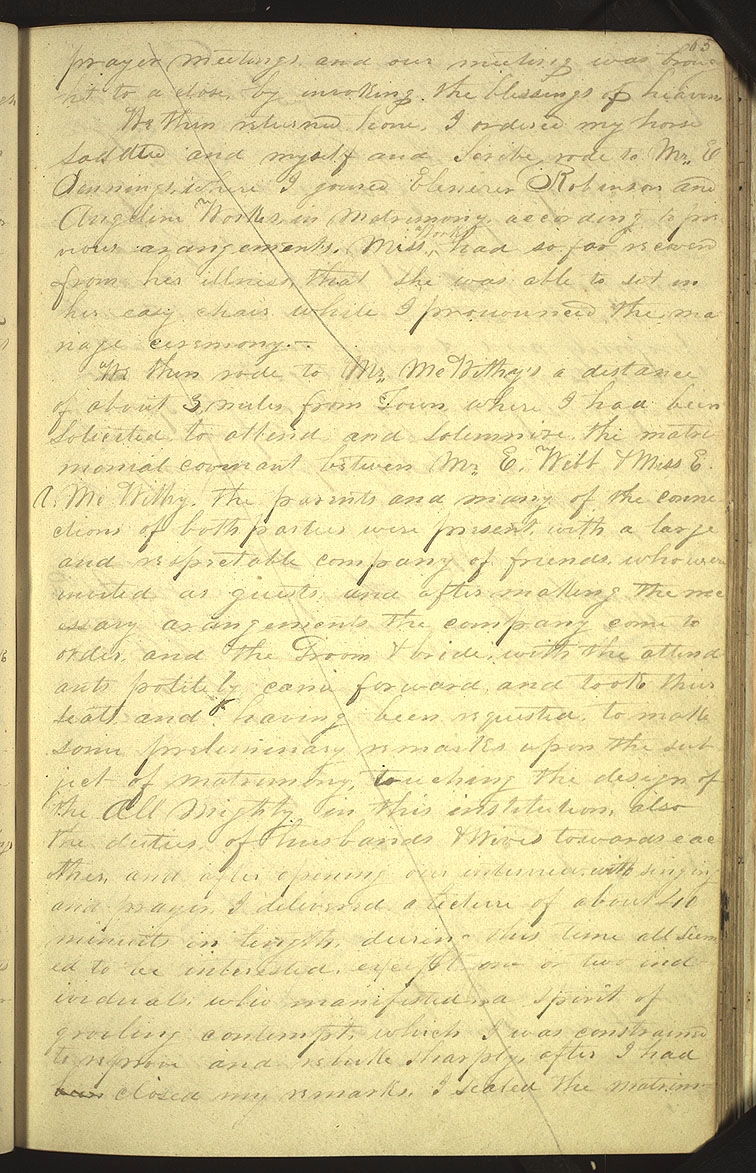 65
prayer meetings. and our meeting was brou
ht to a close, by invoking the blessings of heaven
We then returned home, I ordered my horse
saddled and myself and Scribe, rode to Mr. E
Jennings, where I joined Ebenezer Robinson and
Angeline Works, in matrimony, according to pre
vious arangements. Miss Works had so far recover
from her illness, that she was able to set in
her easy chair while I pronounced the ma
riage ceremony.—
We then rode to Mr. McWithy's a distance
of about 3 miles from Town where I had been
Solicited, to attend and solemnize, the matri
monial covenant betwen Mr. E. Webb & Miss E.
A. McWithy. the parents and many of the conne
ctions of both parties were present, with a large
and respectable company of friends, who were
invited as guests; and after making the ne
essary arangements the company come to
order, and the Groom & bride, with the attend
ants politely came forward, and took their
seats, and having been requested, to make
some preliminary remarks upon the sub
ject of matrimony, touching the design of
the All Mighty in this institution, also
the duties, of husbands & wives towards eac
other, and after opening our interview with singing
and prayer, I delivered a lecture of about 40
minuits in length, during this time all seem
ed to be interested, except one or two indi
viduals, who manifested, a spirit of
groveling contempt, which I was constrained
to reprove and rebuke sharply, after I had
been closed my remarks, I sealed the matrimo